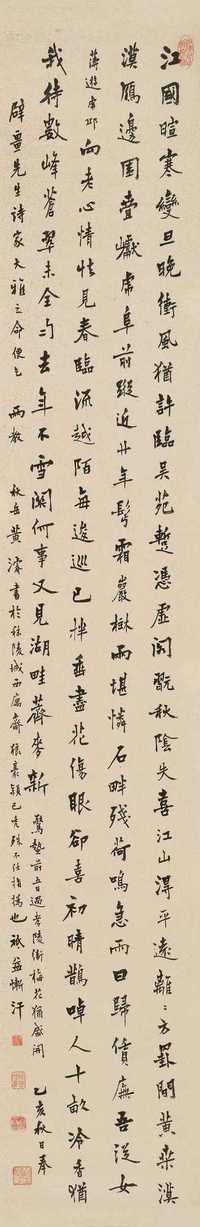 江國暄寒變旦晚衝風猶許臨吳苑蹔憑虛閣翫秋陰失喜江山淂平遠離離方罫間黃朶漠
漠鴈邊園壹巘虎阜前蹤近廿年髩霜巖樾兩堪憐石畔殘荷鳴急雨日歸僨廡吾從女
薄遊虎邱 向老心情怯見春臨流越陌每逡巡已拌垂盡花傷眼卻喜初晴鵲啅人十畝冷香猶
我待數峰蒼翠未全勻去年不雪關何事又見湖畦薺麥新 驚蟄前五日過孝陵衛梅花猶盛開 乙亥秋日奉
辟畺先生詩家大雅之命便乞 兩教 秋岳黃濬書於秣陵城西寓齋 根豪穎已禿殊不任指撝也 祇益慚汗